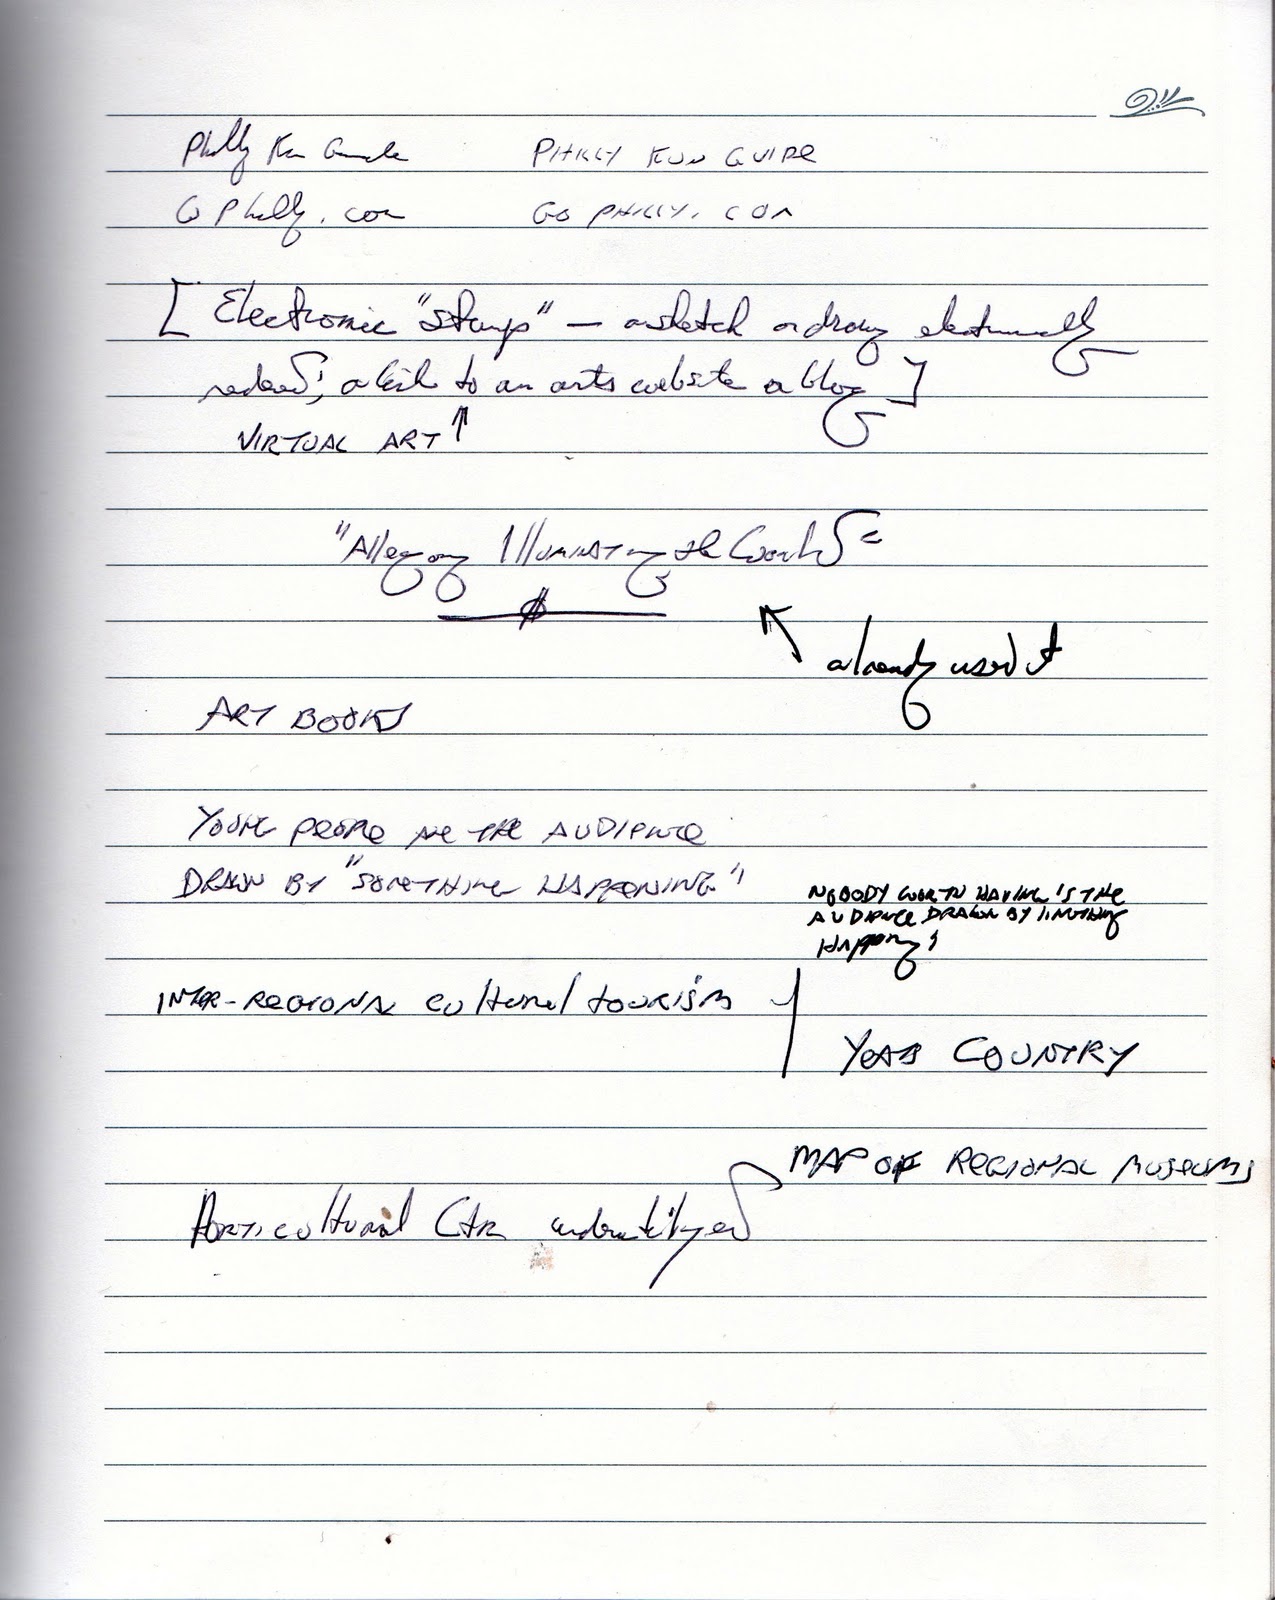 Philly Fun Guide PHILLY FUN GUIDE
Go Philly.com GO PHILLY.COM
[ Electronic "stamps" — a sketch or drawing electronically
rendered; a link to an arts website or blog ]
VIRTUAL ART ↑
"Allegory Illuminating the World"
already used it
ART BOOKS
YOUNG PEOPLE ARE THE AUDIENCE
DRAWN BY "SOMETHING HAPPENING"
NOBODY WORTH HAVING IS THE
AUDIENCE DRAWN BY NOTHING
HAPPENING
INTER-REGIONAL cultural tourism
COUNTRY
MAP OF REGIONAL MUSEUMS
Horticultural Ctr underutilized